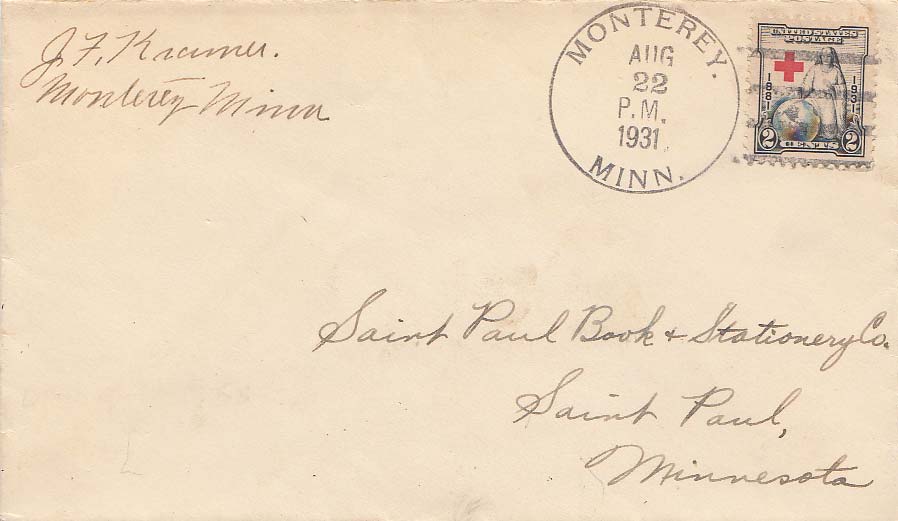 J. F. Kramer.
Monterey Minn
MONTEREY.
AUG
22
P.M.
1931
MINN.
UNITED STATES
POSTAGE
1881
1931
2 CENTS 2
Saint Paul Book + Stationery Co.
Saint Paul,
Minnesota